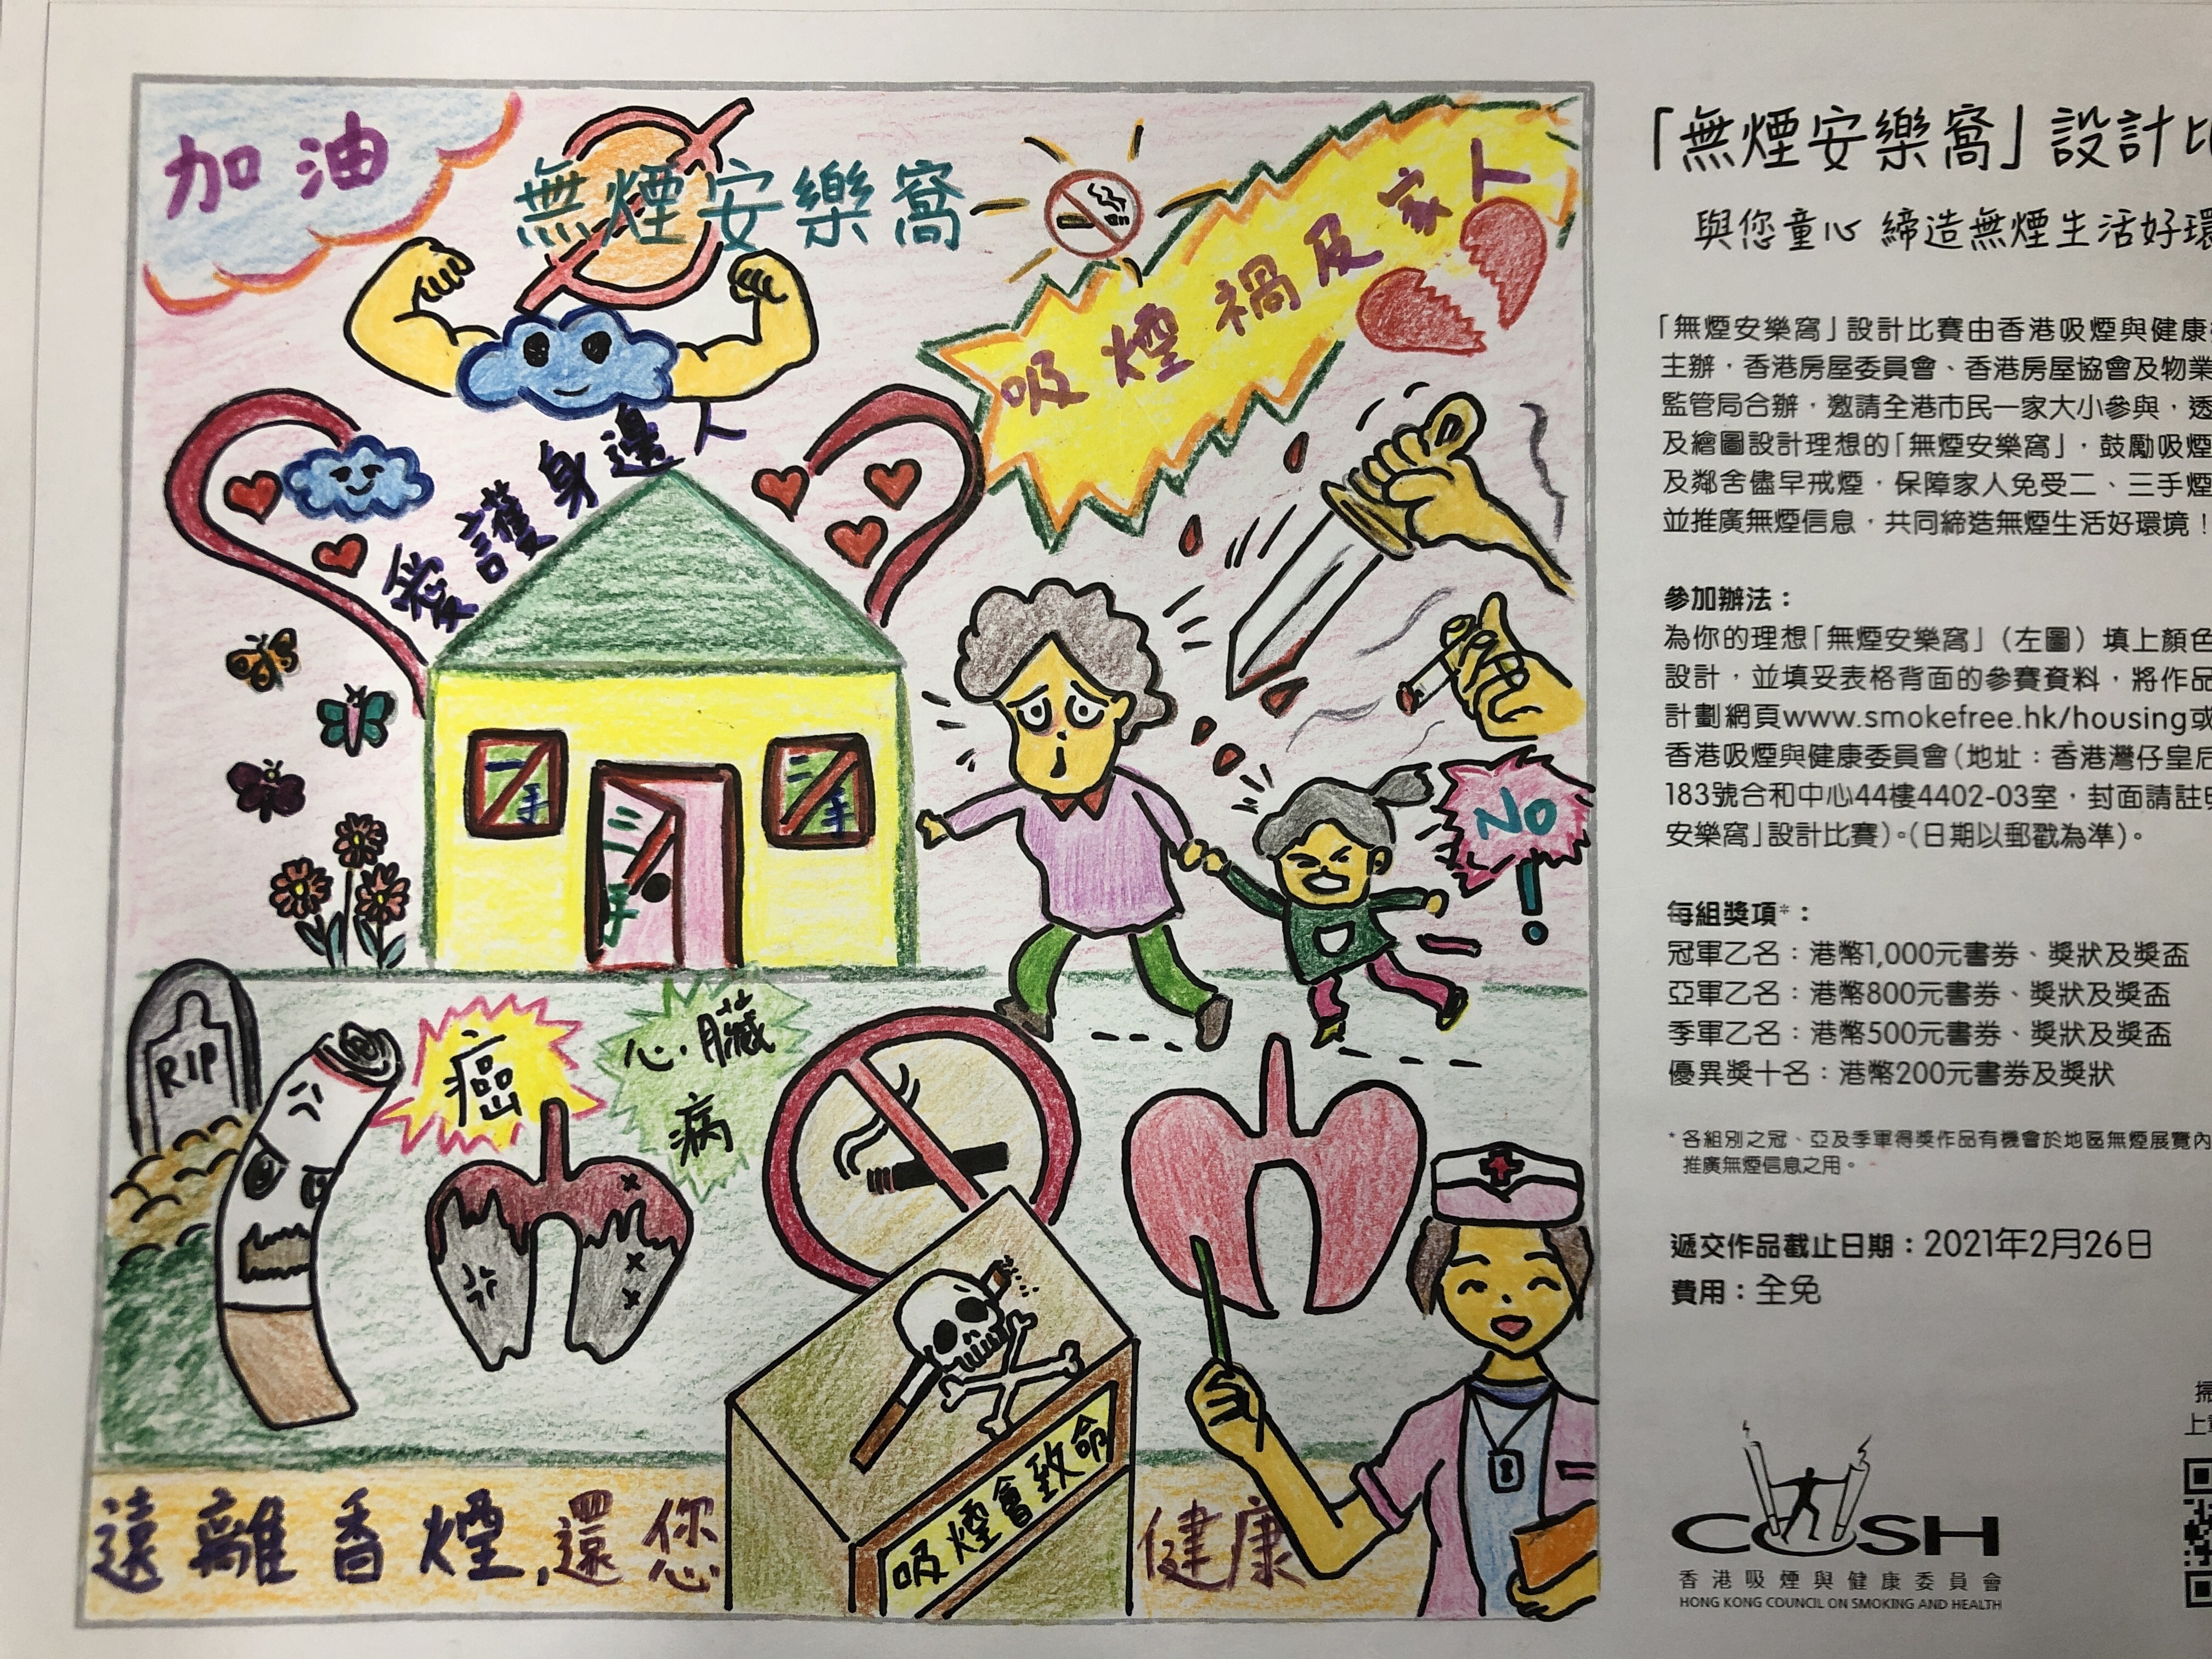 加油
無煙安樂窩
吸煙禍及家人
愛護身邊人
一手
二手
三手
NO!
RIP
癌
心臟
病
吸煙會致命
遠離香煙,還您
健康
「無煙安樂窩」設計比
與您童心 締造無煙生活好環
「無煙安樂窩」設計比賽由香港吸煙與健康
主辦，香港房屋委員會、香港房屋協會及物業
監管局合辦，邀請全港市民一家大小參與，透
及繪圖設計理想的「無煙安樂窩」，鼓勵吸煙
及鄰舍儘早戒煙，保障家人免受二、三手煙
並推廣無煙信息，共同締造無煙生活好環境！
參加辦法：
為你的理想「無煙安樂窩」（左圖）填上顏色
設計，並填妥表格背面的參賽資料，將作品
計劃網頁www.smokefree.hk/housing或
香港吸煙與健康委員會（地址：香港灣仔皇后
183號合和中心44樓4402-03室，封面請註明
安樂窩」設計比賽）。（日期以郵戳為準）。
每組獎項*：
冠軍乙名：港幣1,000元書券、獎狀及獎盃
亞軍乙名：港幣800元書券、獎狀及獎盃
季軍乙名：港幣500元書券、獎狀及獎盃
優異獎十名：港幣200元書券及獎狀
* 各組別之冠、亞及季軍得獎作品有機會於地區無煙展覽內
推廣無煙信息之用。
遞交作品截止日期：2021年2月26日
費用：全免
掃
上
COSH
香港吸煙與健康委員會
HONG KONG COUNCIL ON SMOKING AND HEALTH